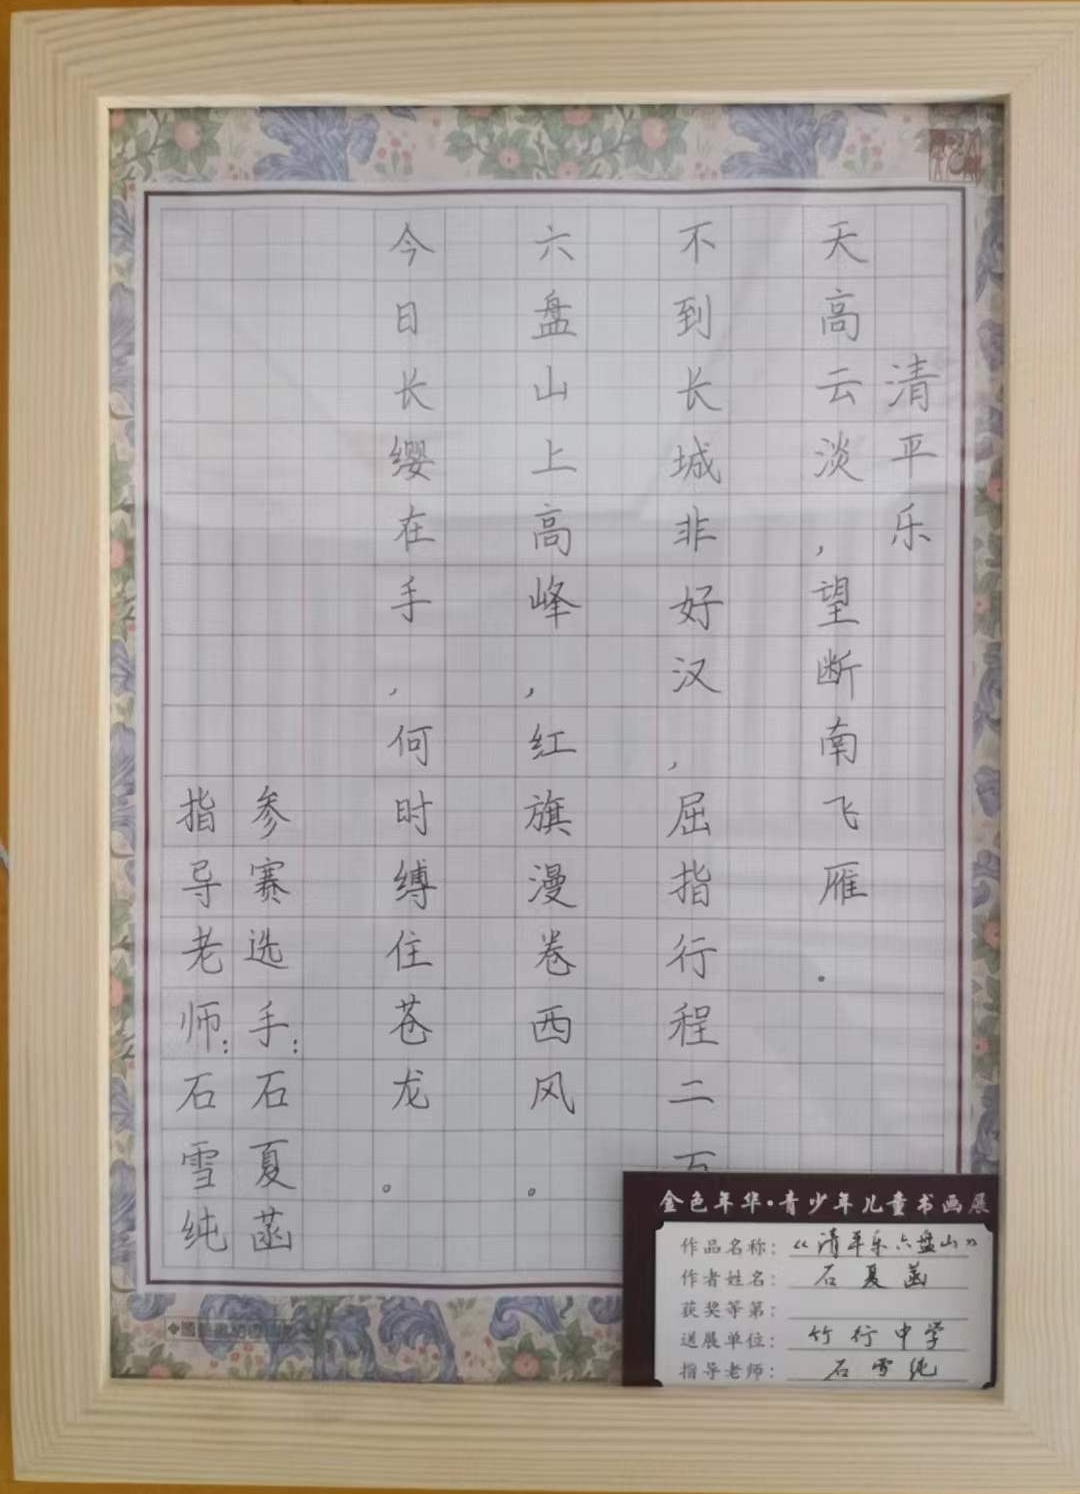 清平乐
天高云淡,望断南飞雁.
不到长城非好汉,屈指行程二万
六盘山上高峰,红旗漫卷西风。
今日长缨在手,何时缚住苍龙。
参赛选手:石夏菡
指导老师:石雪纯
金色年华·青少年儿童书画展
作品名称:《清平乐六盘山》
作者姓名:石夏菡
获奖等第:
送展单位:竹行中学
指导老师:石雪纯